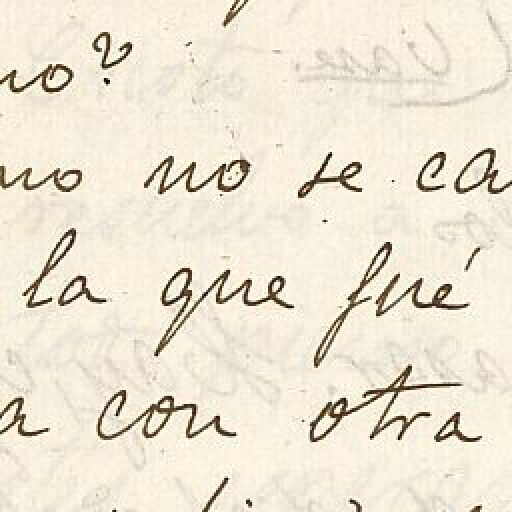 no?
no no se ca
la que fué
a con otra